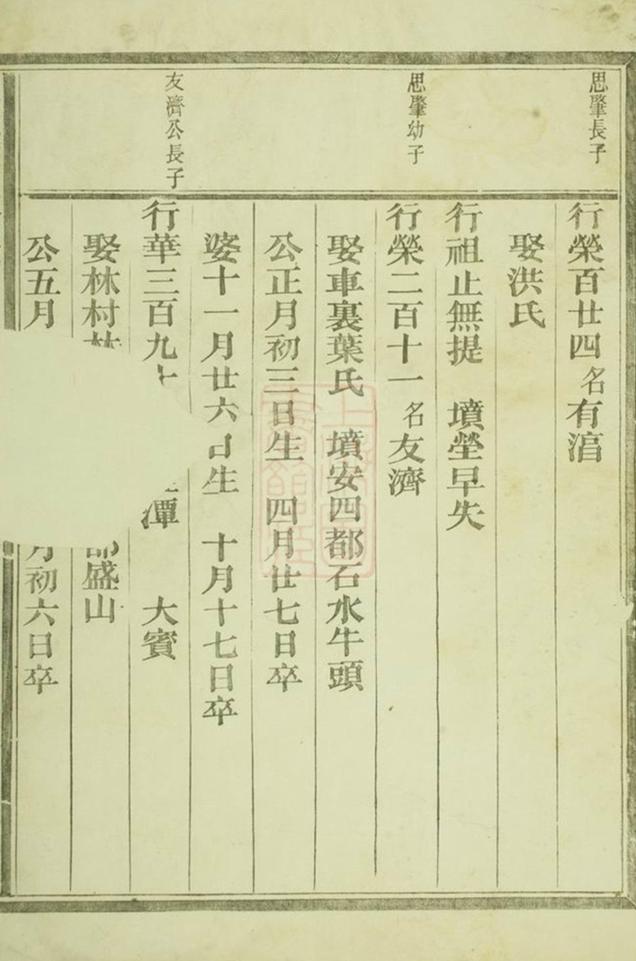 思肇長子
行榮百廿四 名有涫
娶洪氏
行祖止無提 墳塋早失
思肇幼子
行榮二百十一 名友濟
娶車裏葉氏 墳安四都石水牛頭
公正月初三日生 四月廿七日卒
婆十一月廿六日生 十月十七日卒
友濟公長子
行華三百九 潭 大賓
娶林村 盛山
公五月 月初六日卒